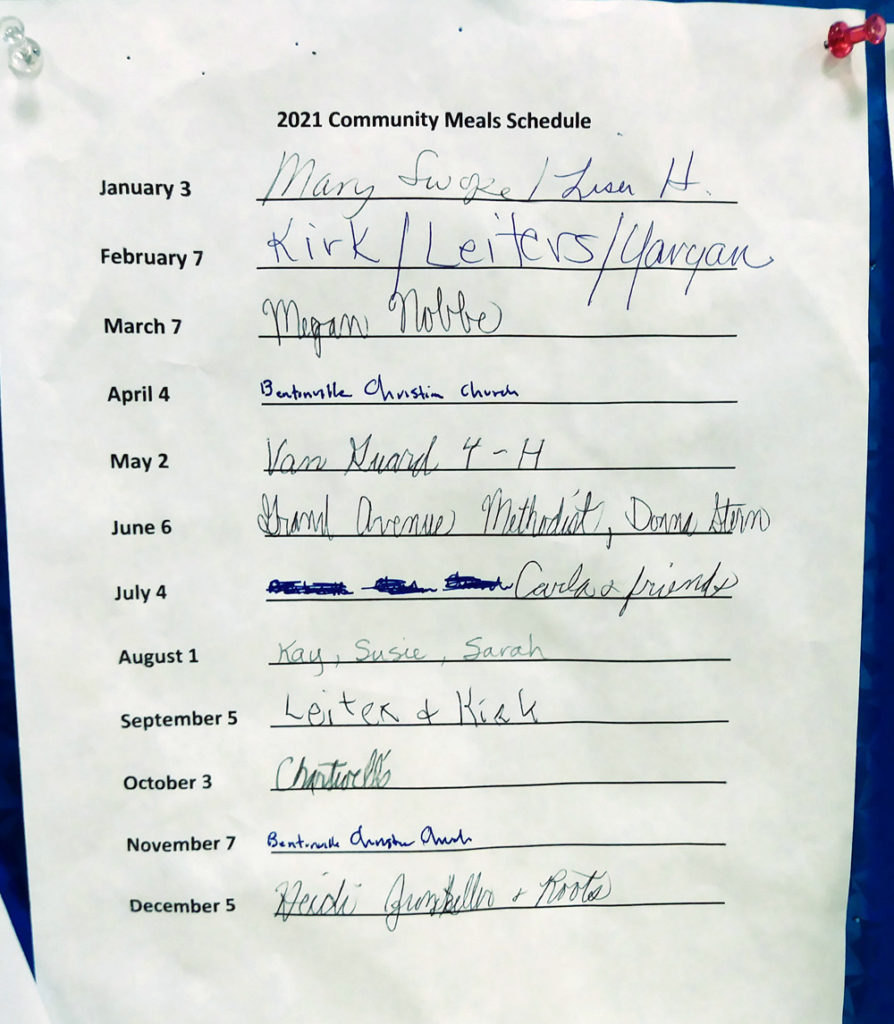 2021 Community Meals Schedule
January 3 Mary Swoke / Lisa H.
February 7 Kirk / Leiters / Yargan
March 7 Megan Nobbe
April 4 Bentonville Christian Church
May 2 Van Guard 4-H
June 6 Grand Avenue Methodist, Donna Stern
July 4 Carla & friends
August 1 Kay, Susie, Sarah
September 5 Leiter & Kirk
October 3 Chartwells
November 7 Bentonville Christian Church
December 5 Heidi & Roots